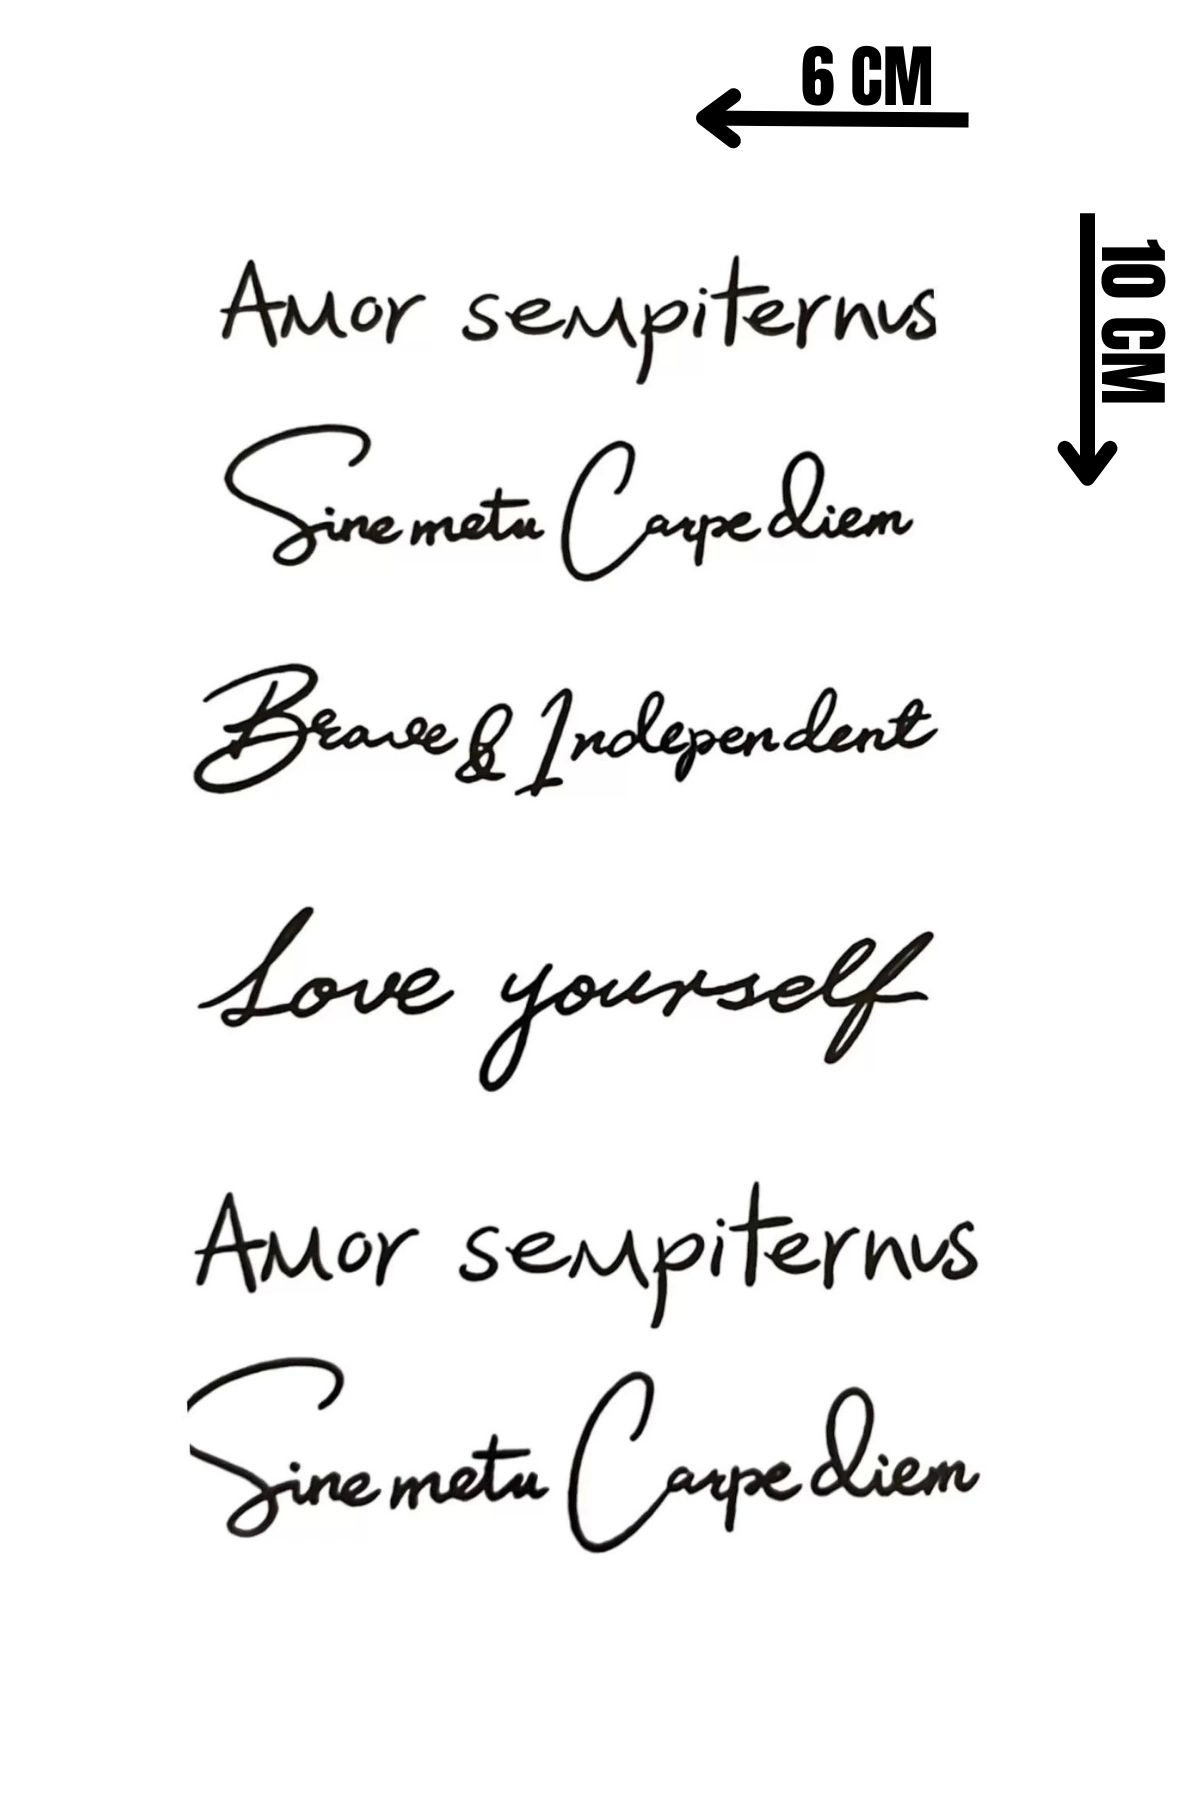 6 CM
10 CM
Amor sempiternus
Sine metu Carpe diem
Brave & Independent
Love yourself
Amor sempiternus
Sine metu Carpe diem